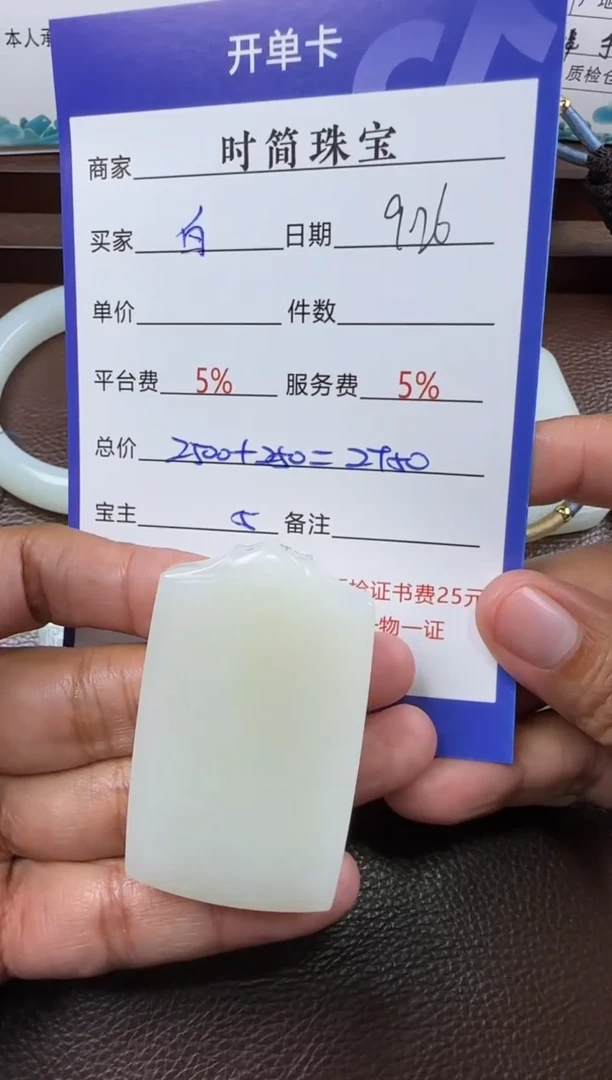 本人承
产地
质检仓
开单卡
商家 时简珠宝
买家 白 日期 926
单价 件数
平台费 5% 服务费 5%
总价 2500+250=2750
宝主 备注
检证书费25元
物一证